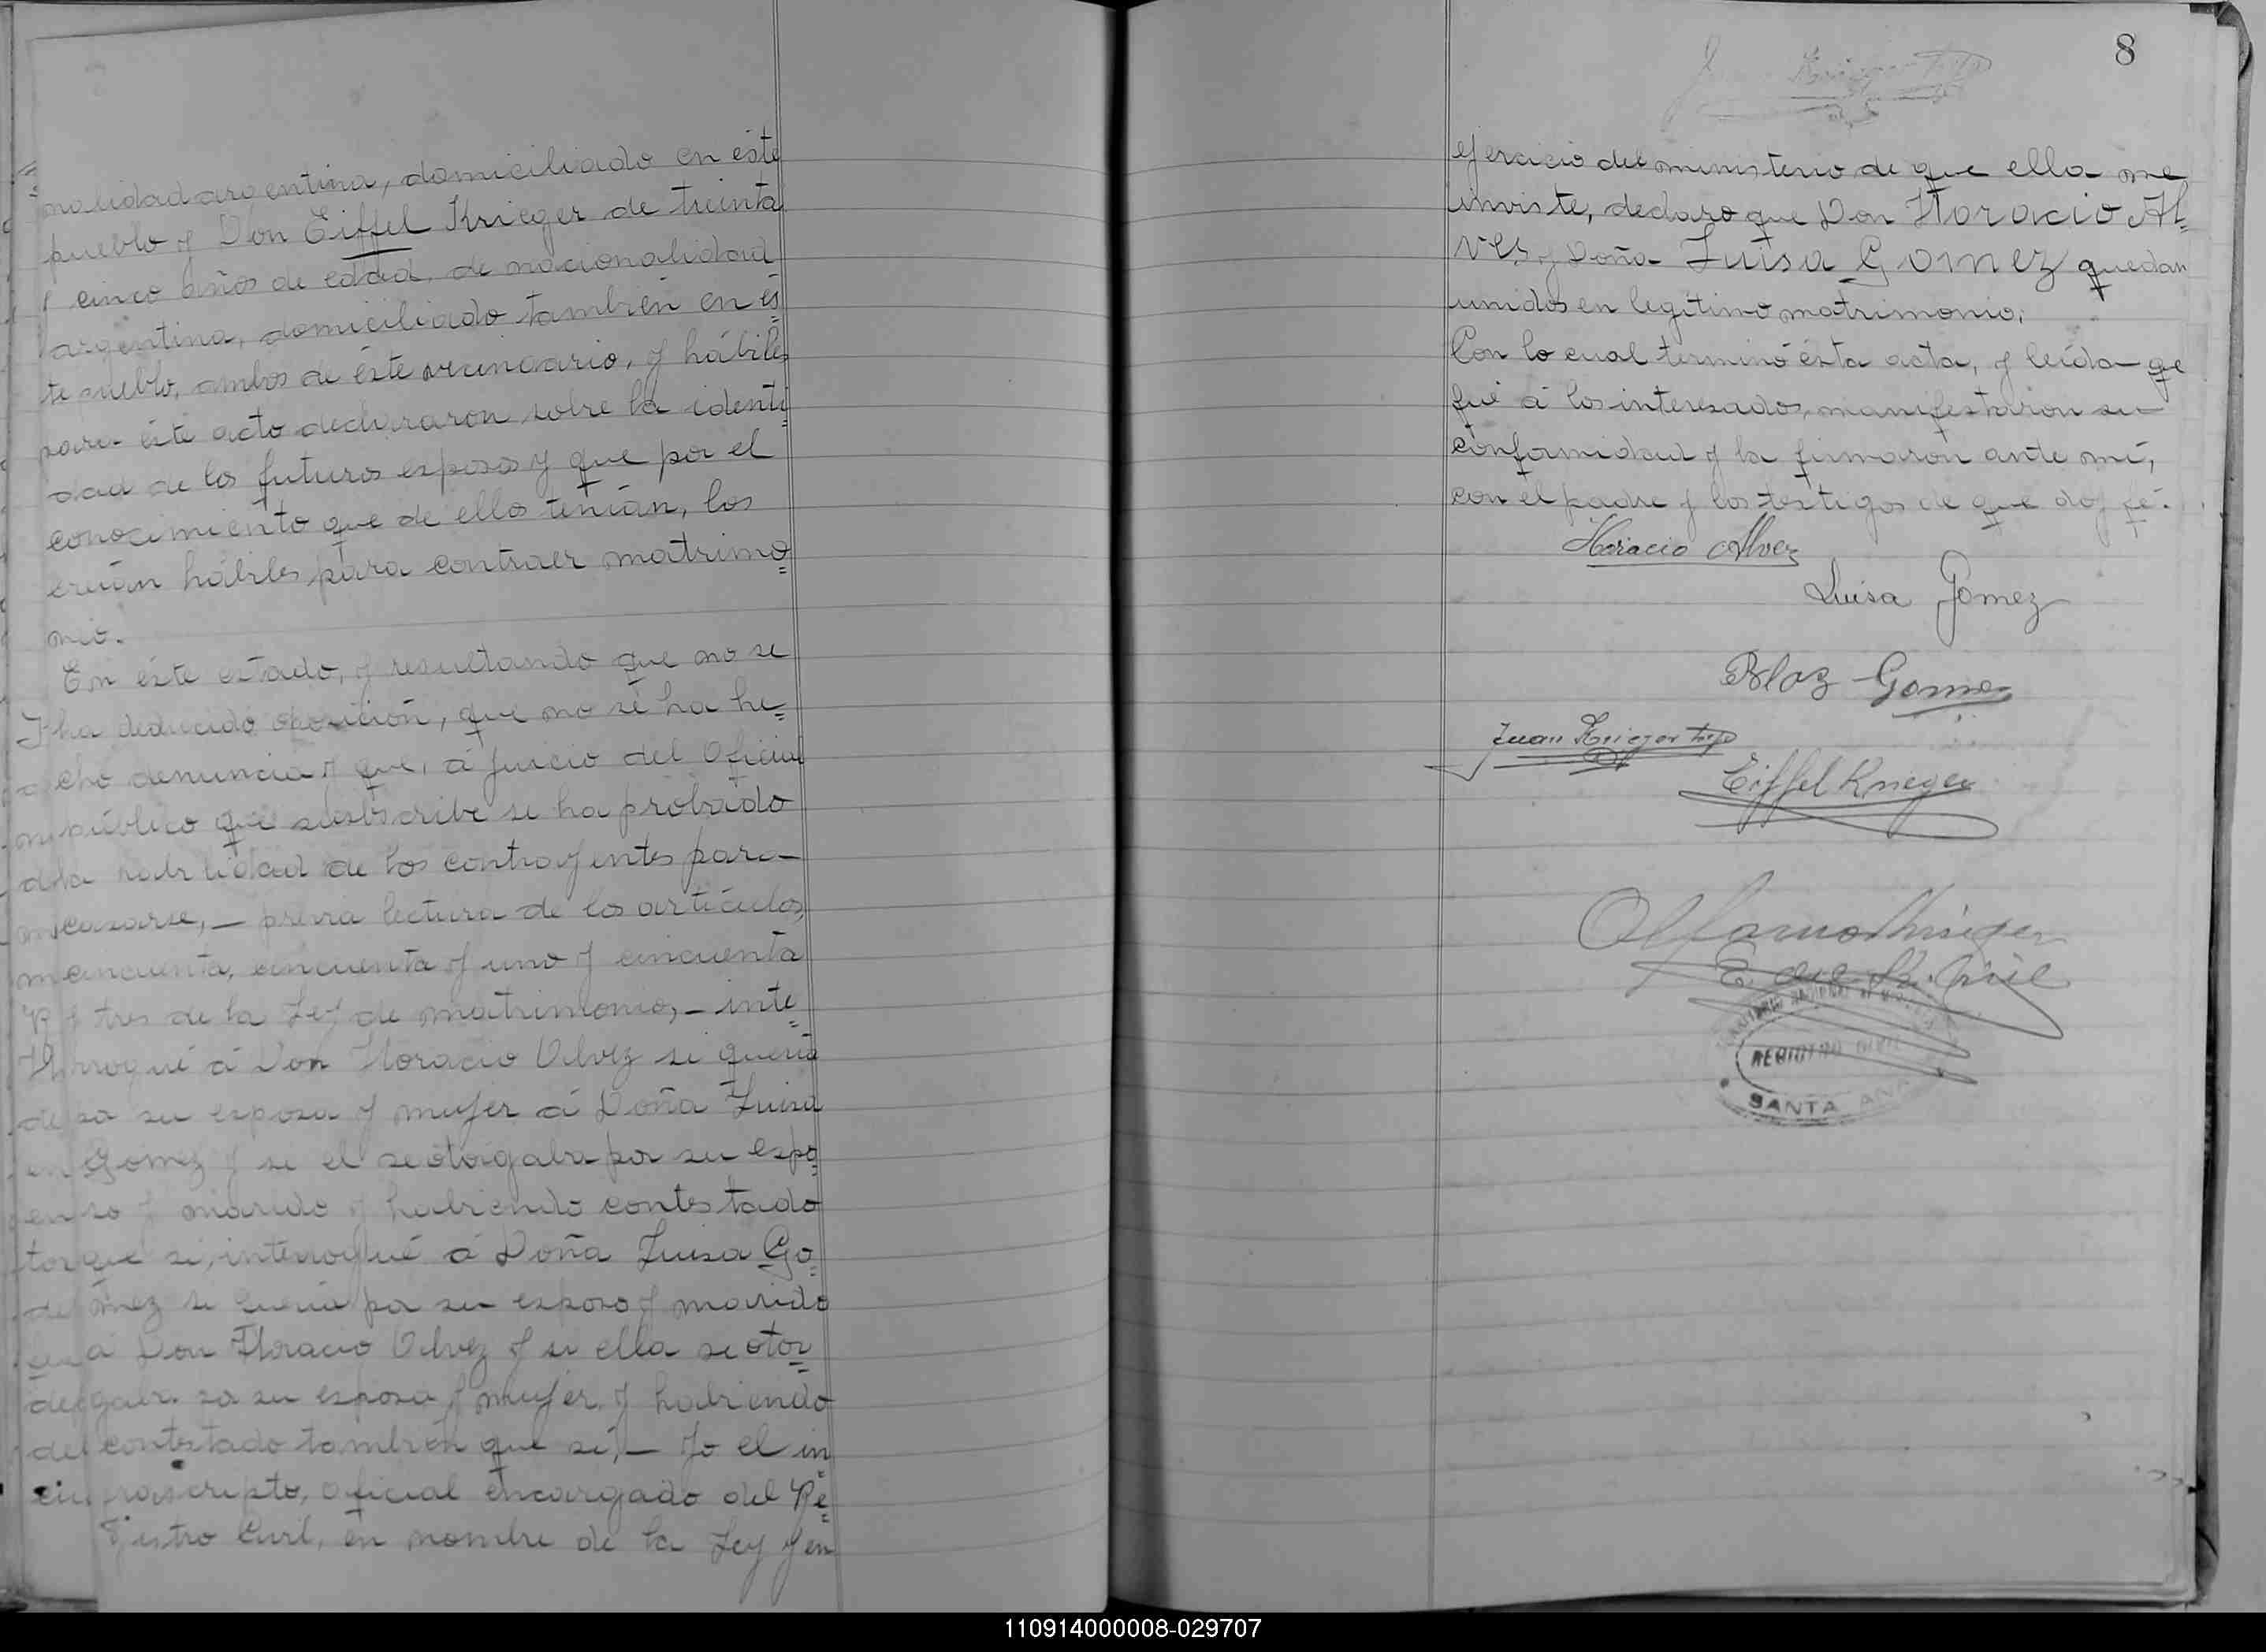 nalidad argentina, domiciliado en éste
pueblo y Don Eiffel Krieger de treinta
y cinco años de edad, de nacionalidad
argentina, domiciliado también en és=
te pueblo, ambos de éste vecindario, y hábiles
para éste acto declararon sobre la identi=
dad de los futuros esposos y que por el
conocimiento que de ellos tenían, los
creían hábiles para contraer matrimo=
nio.
En éste estado, y resultando que no se
ha deducido oposición, que no se ha he=
cho denuncia y que, á juicio del Oficial
público que subscribe se ha probado
la habilidad de los contrayentes para
casarse, _ previa lectura de los artículos
cincuenta, cincuenta y uno y cincuenta
y tres de la Ley de matrimonio, _ inte=
rrogué á Don Horacio Alvez si quería
su esposa y mujer á Doña Luisa
Gomez y si el se otorgaba por su espo=
so y marido y habiendo contestado
que si, interrogué á Doña Luisa Go=
mez si quería por su esposo y marido
á Don Horacio Alvez y si ella se otor=
gaba su esposa y mujer, y habiendo
contestado también que sí, _ Yo el in=
frascripto, oficial encargado del Re=
gistro Civil, en nombre de la Ley y en
8
ejercicio del ministerio de que ella me
inviste, declaro que Don Horacio Al=
vez y Doña Luisa Gomez quedan
unidos en legítimo matrimonio.
Con lo cual terminó ésta acta, y leída que
fué á los interesados, manifestaron su
conformidad y la firmaron ante mí,
con el padre y los testigos de que doy fé.
Horacio Alvez
Luisa Gomez
Blaz Gomez
Juan Krieger hijo
Eiffel Krieger
Krieger
E. del R. Civil
REGISTRO CIVIL
SANTA ANA
110914000008-029707